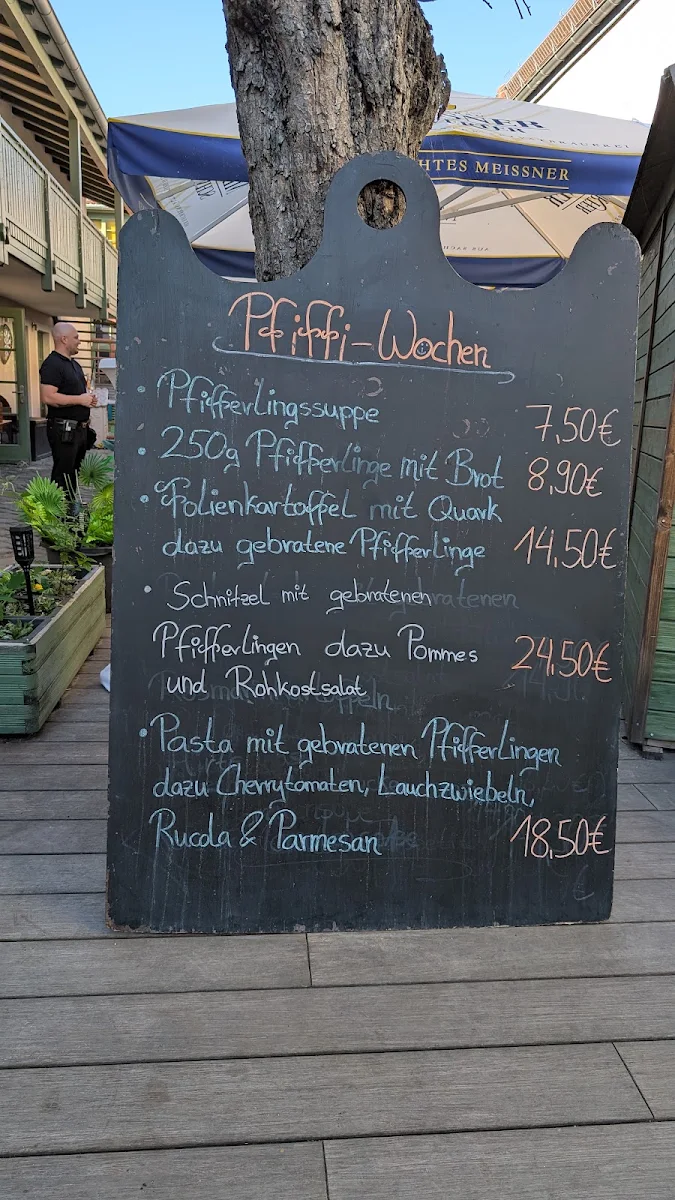 CHTES MEISSNER
Pfiffi-Wochen
• Pfifferlingssuppe 7,50€
• 250g Pfifferlinge mit Brot 8,90€
• Folienkartoffel mit Quark
dazu gebratene Pfifferlinge 14,50€
• Schnitzel mit gebratenen
Pfifferlingen dazu Pommes 24,50€
und Rohkostsalat
• Pasta mit gebratenen Pfifferlingen
dazu Cherrytomaten, Lauchzwiebeln,
Rucola & Parmesan 18,50€